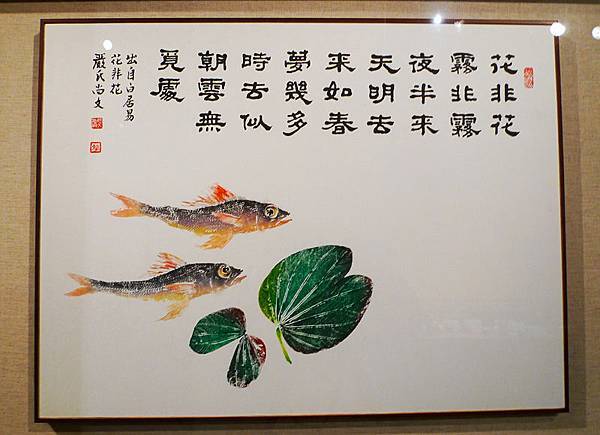 花非花
霧非霧
夜半来
天明去
来如春
夢幾多
時去似
朝雲無
覓處
出自白居易
花非花
嚴氏尚文